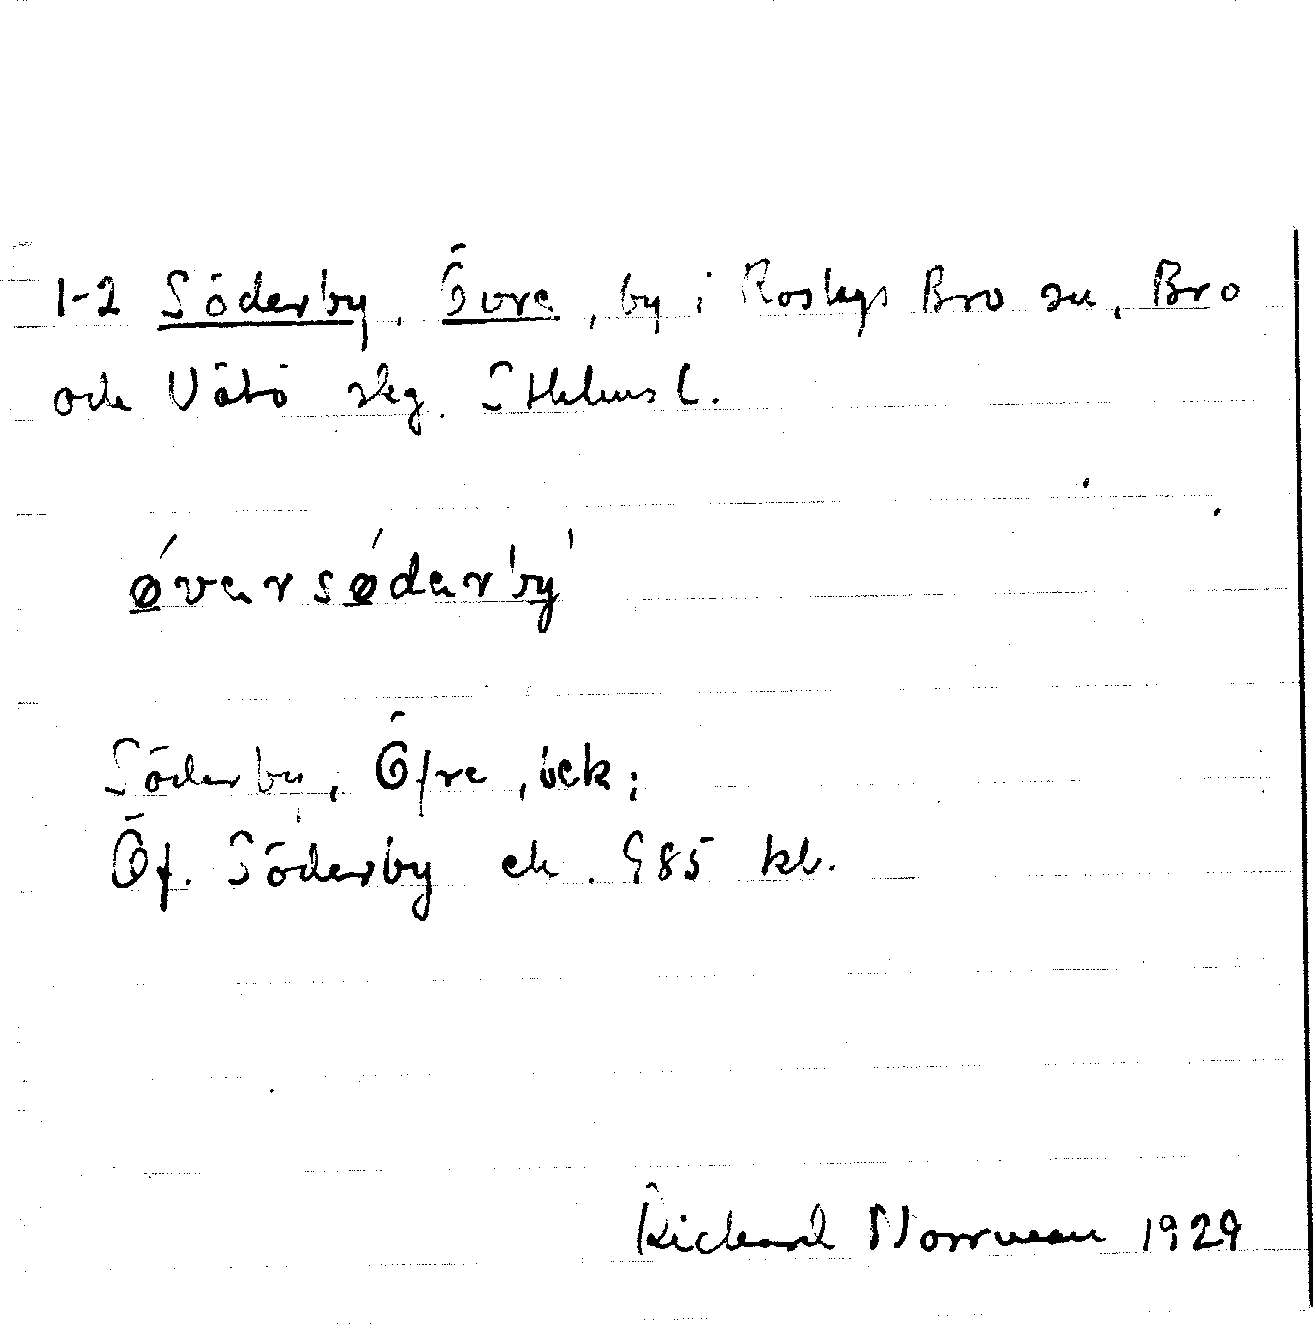 1-2 Söderby, Övre, by i Roslags Bro sn, Bro
och Vätö skg. Sthlms l.
ǿversǿder'by'
Söderby, Öfre, öek;
Öf. Söderby ek. 985 kl.
Rickard Norrman 1929